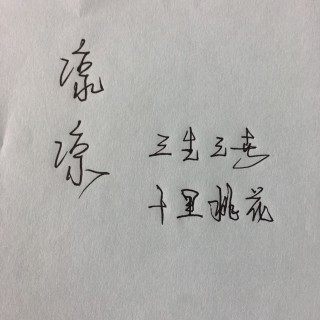 凉凉
三生三世
十里桃花